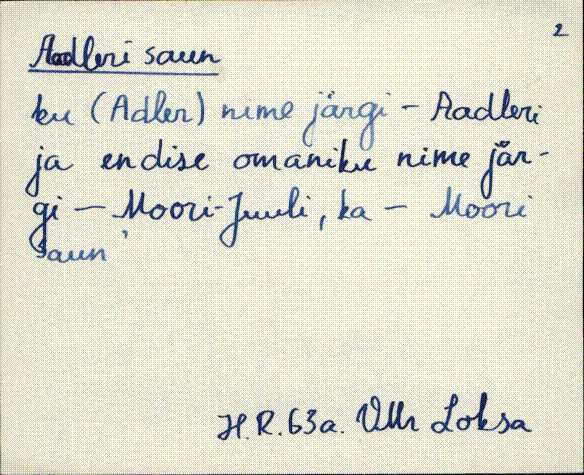 2
Aadleri saun
ku (Adler) nime järgi - Aadleri
ja endise omaniku nime jär-
gi - Moori-Juuli, ka - Moori
saun
H.R. 63a. VMr Loksa